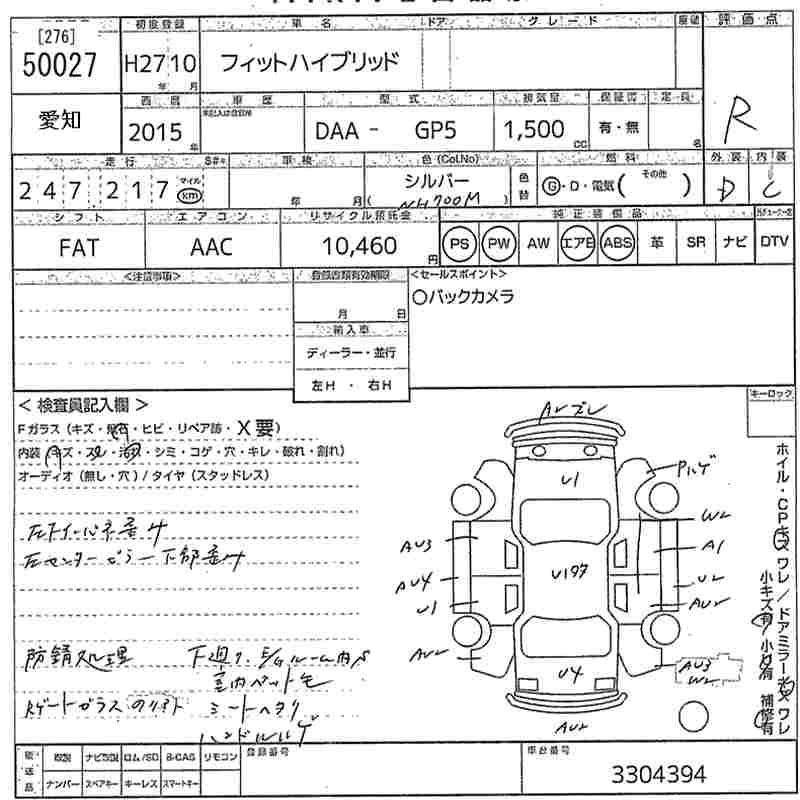 [276]
50027
初度登録
車名
ドア
グレード
評価点
H27 10
年 月
フィットハイブリッド
R
愛知
西暦
車歴
型式
排気量
保証書
定員
2015 年
未記入は自家用
DAA - GP5
1,500 cc
有・無
名
走行
S#*
車検
色(Col.No)
燃料
外装
内装
247217
マイル
km
年 月
シルバー
( NH700M )
色替
G・D・電気(その他 )
D
C
シフト
エアコン
リサイクル預託金
純正装備品
FAT
AAC
10,460 円
PS PW AW エアB ABS 革 SR ナビ DTV
<注意事項>
登録書類有効期限
月 日
輸入車
ディーラー・並行
左H ・ 右H
<セールスポイント>
○バックカメラ
キーロック
< 検査員記入欄 >
Fガラス(キズ・飛石・ヒビ・リペア跡・X要)
内装(キズ・スレ・汚れ・シミ・コゲ・穴・キレ・破れ・割れ)
オーディオ(無し・穴)/タイヤ(スタッドレス)
左センターピラー下部歪み
防錆処理
下廻り、E/Gルーム内サ
室内ペット毛
Rゲートガラスのリフト
シートヘタリ
ハンドルハゲ
AUズレ
U1
Pハゲ
W2
AU3
A1
AU4
U197
U2
U1
AU2
AU2
U4
AU3
W2
AU2
ホイル・CPキズ ワレ/ドアミラーキズ ワレ
小キズ有 小凹有 補修有
後送品
取説
ナビ取説
ロム/SD
B-CAS
リモコン
ナンバー
スペアキー
キーレス
スマートキー
登録番号
車台番号
3304394